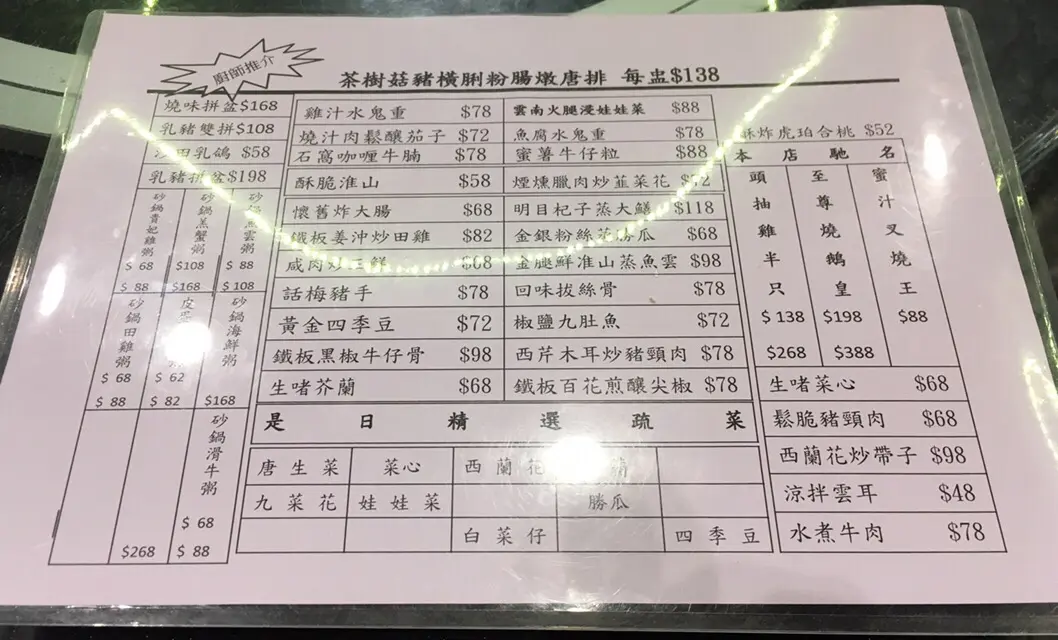 廚師推介
茶樹菇豬橫脷粉腸燉唐排 每盅$138
燒味拼盆$168
乳豬雙拼$108
田乳鴿 $58
乳豬拼盆$198
砂鍋貴妃雞粥
$ 68
$ 88
砂鍋羔蟹粥
$108
$168
砂鍋魚雲粥
$ 88
$ 108
砂鍋田雞粥
$ 68
$ 88
皮
$ 62
$ 82
砂鍋海鮮粥
$168
$268
砂鍋滑牛粥
$ 68
$ 88
雞汁水鬼重 $78
燒汁肉鬆釀茄子 $72
石窩咖喱牛腩 $78
酥脆淮山 $58
懷舊炸大腸 $68
鐵板姜沖炒田雞 $82
咸肉炒三鮮 $68
話梅豬手 $78
黃金四季豆 $72
鐵板黑椒牛仔骨 $98
生啫芥蘭 $68
雲南火腿浸娃娃菜 $88
魚腐水鬼重 $78
蜜薯牛仔粒 $88
煙燻臘肉炒韮菜花
明目杞子蒸大鱔 $118
金銀粉絲蒸勝瓜 $68
金腿鮮准山蒸魚雲 $98
回味拔絲骨 $78
椒鹽九肚魚 $72
西芹木耳炒豬頸肉 $78
鐵板百花煎釀尖椒 $78
酥炸虎珀合桃 $52
本店馳名
頭抽雞半只
$ 138
$268
至尊燒鵝皇
$198
$388
蜜汁叉燒王
$88
生啫菜心 $68
鬆脆豬頸肉 $68
西蘭花炒帶子 $98
涼拌雲耳 $48
水煮牛肉 $78
是日精選疏菜
唐生菜 菜心 西蘭花
九菜花 娃娃菜 勝瓜
白菜仔 四季豆